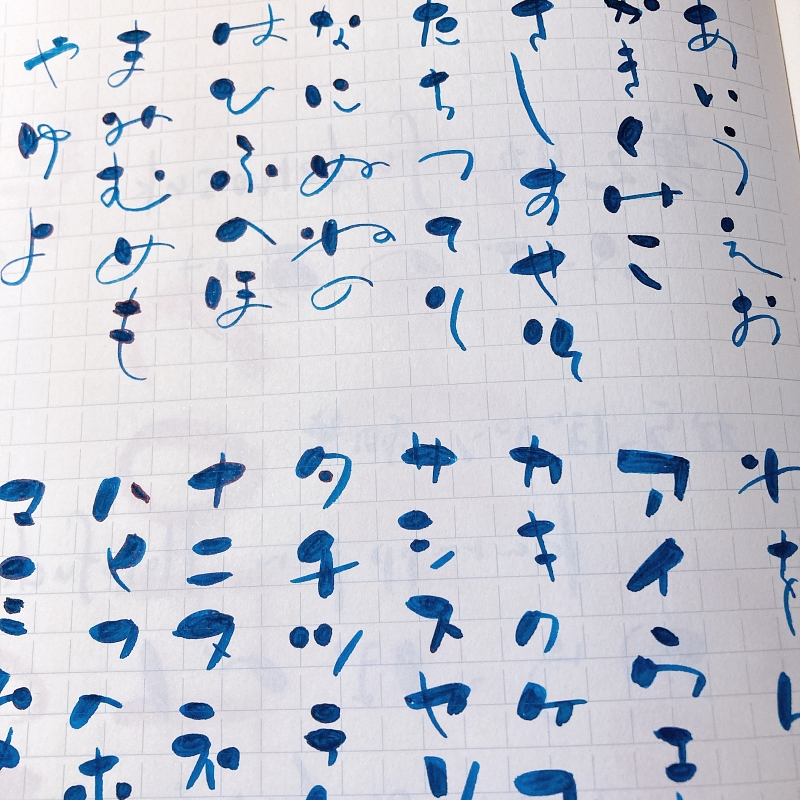 あいうえお
かきくけこ
さしすせそ
たちつてと
なにぬねの
はひふへほ
まみむめも
やゆよ
わをん
アイウエ
カキクケコ
サシスセソ
タチツテ
ナニヌネ
ハヒフヘホ
マ